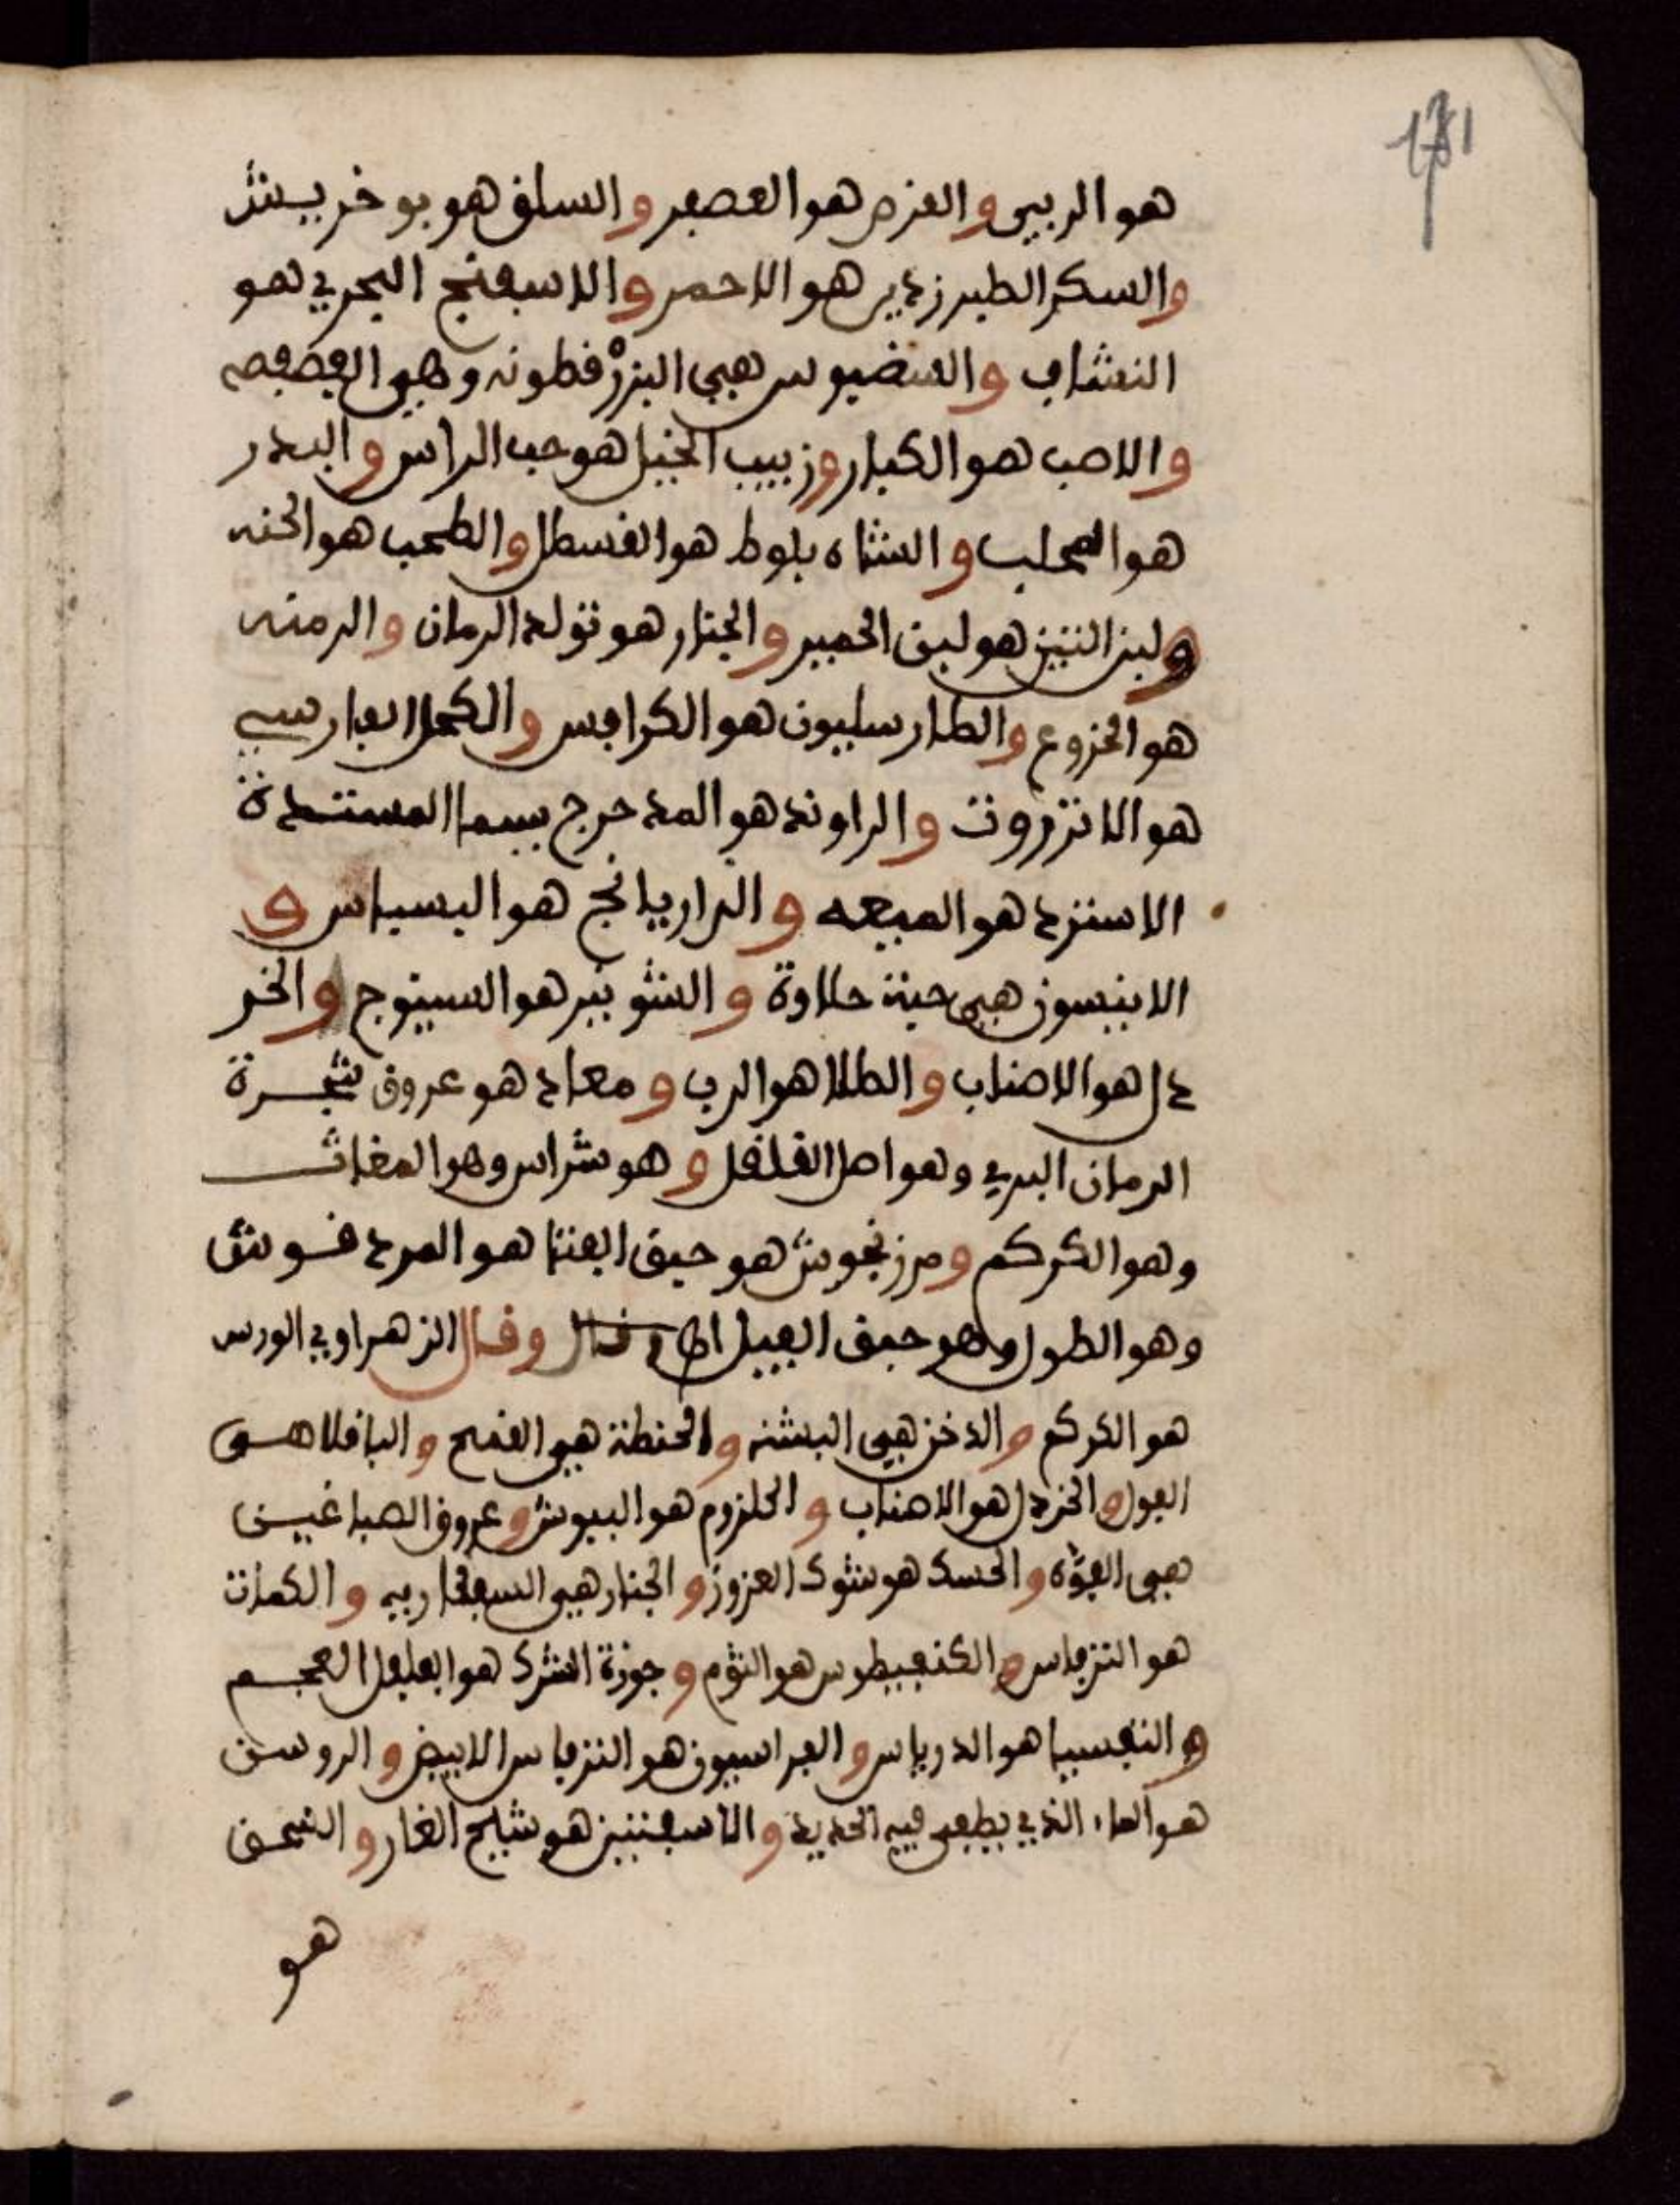 181
هو الربيى والعزم هو العصفر والسلق هو بو خريش
والسكر الطبرزدي هو الاحمر والاسفنج البحري هو
النشاف و هي البزر قطونه وهي
والاصب هو الكبار وزبيب الجبل هو حب الراس والبدر
هو المحلب والشاه بلوط هو القسطل والطحب هو الخنه
ولبن التين هو لبن الحمير والجنار هو تولد الرمان والرمنه
هو الخروع والطارسليون هو الكرافس والكحل الفارسي
هو الانزروت والراوند هو المدحرج
الاسترد هو الميعه والراريانج هو البسباس و
الانيسون هي حبة حلاوة والشونيز هو السينوج والخر
دل هو الاصناب والطلا هو الرب و معاد هو عروق شجرة
الرمان البري وهو اصل القلقل و هو شراس وهو المغاث
وهو الكركم ومرزنجوش هو حبق الفتا هو المردقوش
وهو الطول وهو حبق الفيل وقال الزهراوي الورس
هو الكركم والدخن هي البشنه والحنطة هي القمح والباقلا هى
الفول والخردل هو الاصناب والحلزوم هو الببوش وعروق الصباغين
هي الفوه والحسك هو شوك العزوز والجنار هي والكمات
هو الترفاس و هو الثوم وجوزة الشرك هو الفلفل العجم
والتفسيا هو الدرياس والفراسيون هو الترفاس الابيض والروسن
هو الماء الذي يطفى فيه الحديد والاسفنتين هو شيح الغار والشحن
هو